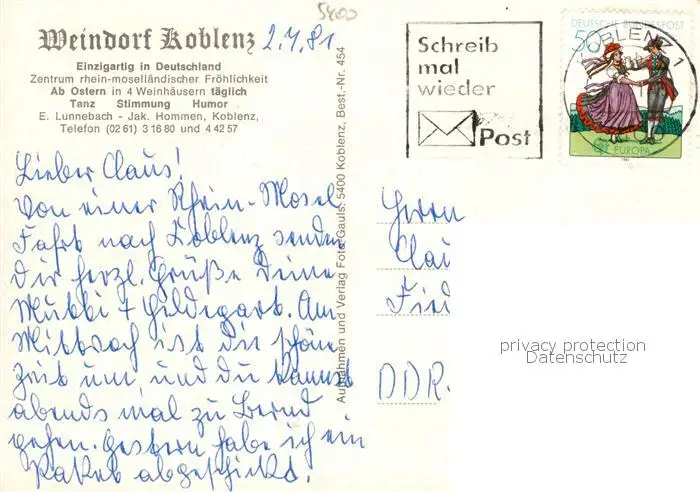 5400
Weindorf Koblenz 2.7.81
Einzigartig in Deutschland
Zentrum rhein-moselländischer Fröhlichkeit
Ab Ostern in 4 Weinhäusern täglich
Tanz Stimmung Humor
E. Lunnebach - Jak. Hommen, Koblenz,
Telefon (02 61) 3 16 80 und 4 42 57
Lieber Claus!
Von einer Rhein-Mosel
Fahrt nach Koblenz senden
Dir herzl. Grüße Deine
Mutti + Hildegart. Am
Mittwoch ist die schöne
Zeit um und du kannst
abends mal zu Bernd
gehen. Gestern habe ich ein
Paket abgeschickt.
Aufnahmen und Verlag Foto Gauls, 5400 Koblenz, Best.-Nr. 454
Schreib
mal
wieder
Post
DEUTSCHE BUNDESPOST
50
KOBLENZ 1
EUROPA
1981
Herrn
Clau
Fie
DDR.
privacy protection
Datenschutz